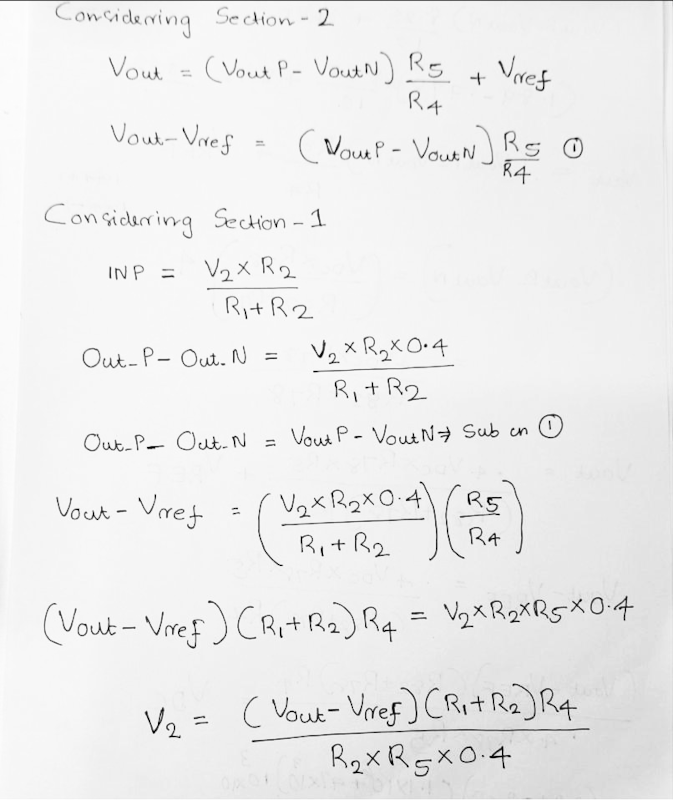 Considering Section-2
Vout = (VoutP - VoutN) R5/R4 + Vref
Vout-Vref = (VoutP - VoutN) R5/R4 ①
Considering Section-1
INP = V2 x R2 / R1 + R2
Out_P - Out_N = V2 x R2 x 0.4 / R1 + R2
Out_P - Out_N = VoutP - VoutN → Sub in ①
Vout - Vref = (V2 x R2 x 0.4 / R1 + R2) (R5 / R4)
(Vout - Vref) (R1 + R2) R4 = V2 x R2 x R5 x 0.4
V2 = (Vout - Vref) (R1 + R2) R4 / R2 x R5 x 0.4